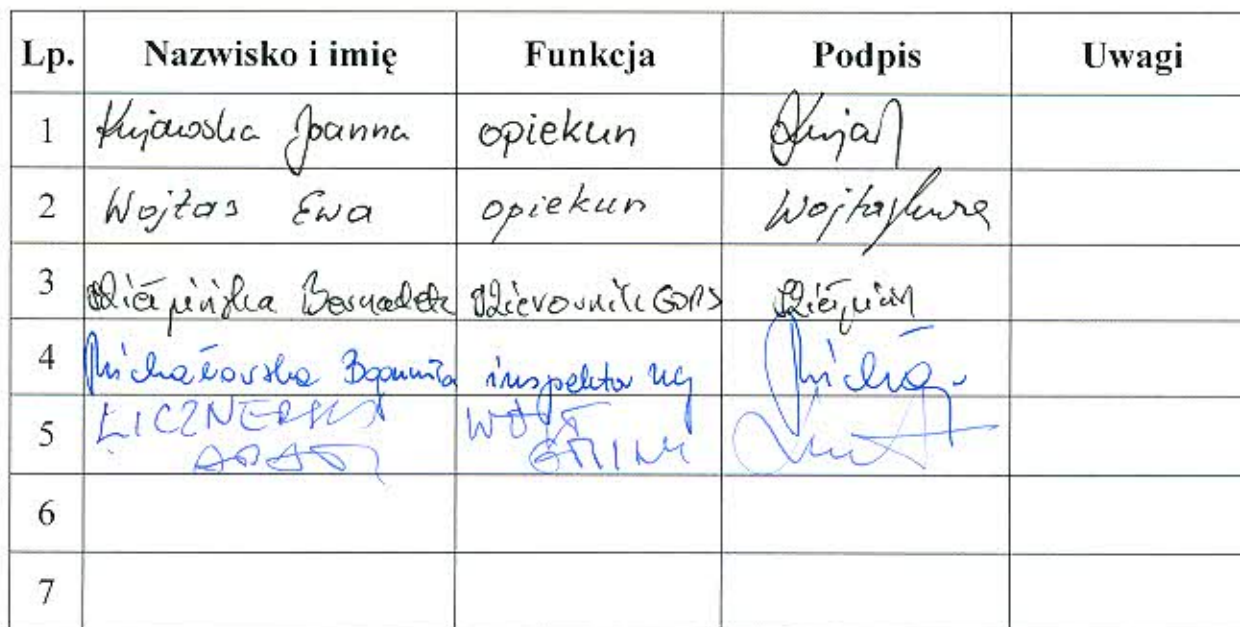 Lp. Nazwisko i imię Funkcja Podpis Uwagi
1 Kujawska Joanna opiekun Kujaw
2 Wojtas Ewa opiekun Wojtas Ewa
3 Bernadeta Kierownik GOPS
4 Michałowska Bogumiła inspektor UG Micha
5 LICZNERSKI WÓJT
ADAM GMINY
6
7